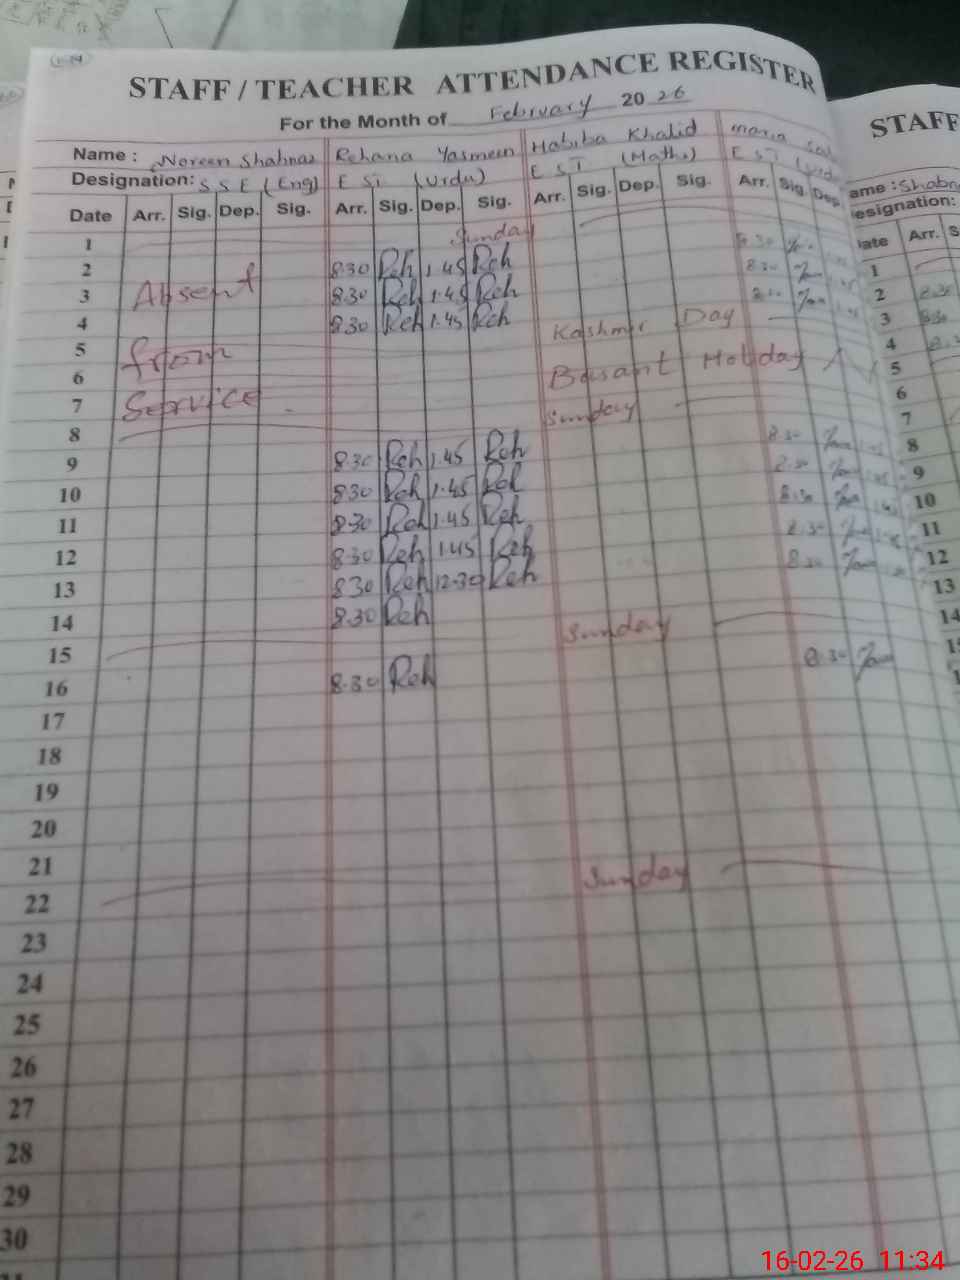 STAFF / TEACHER ATTENDANCE REGISTER
For the Month of February 2026
Name : Noreen Shahnaz Rehana Yasmeen Habiba Khalid Maria
Designation: S S E (Eng) E S T (Urdu) E S T (Maths) E S T (Urdu)
Date Arr. Sig. Dep. Sig. Arr. Sig. Dep. Sig. Arr. Sig. Dep. Sig. Arr. Sig. Dep.
1 Sunday
2 8:30 Reh 1.45 Reh 8.30
3 Absent 8:30 Reh 1.45 Reh 8.30
4 8:30 Reh 1.45 Reh
5 from Kashmir Day
6 Basant Holiday
7 Service
8 Sunday
9 8.30 Reh 1.45 Reh 8.30
10 8:30 Reh 1.45 Reh 8.30
11 8:30 Reh 1.45 Reh 8.30
12 8:30 Reh 1.45 Reh 8.30
13 8:30 Reh 12-30 Reh 8.30
14 8.30 Reh
15 Sunday
16 8.30 Reh 8.30
17
18
19
20
21
22 Sunday
23
24
25
26
27
28
29
30
STAFF
ame : Shabn
esignation:
ate Arr. S
1
2 8:30
3 8:30
4
5
6
7
8
9
10
11
12
13
14
16-02-26 11:34